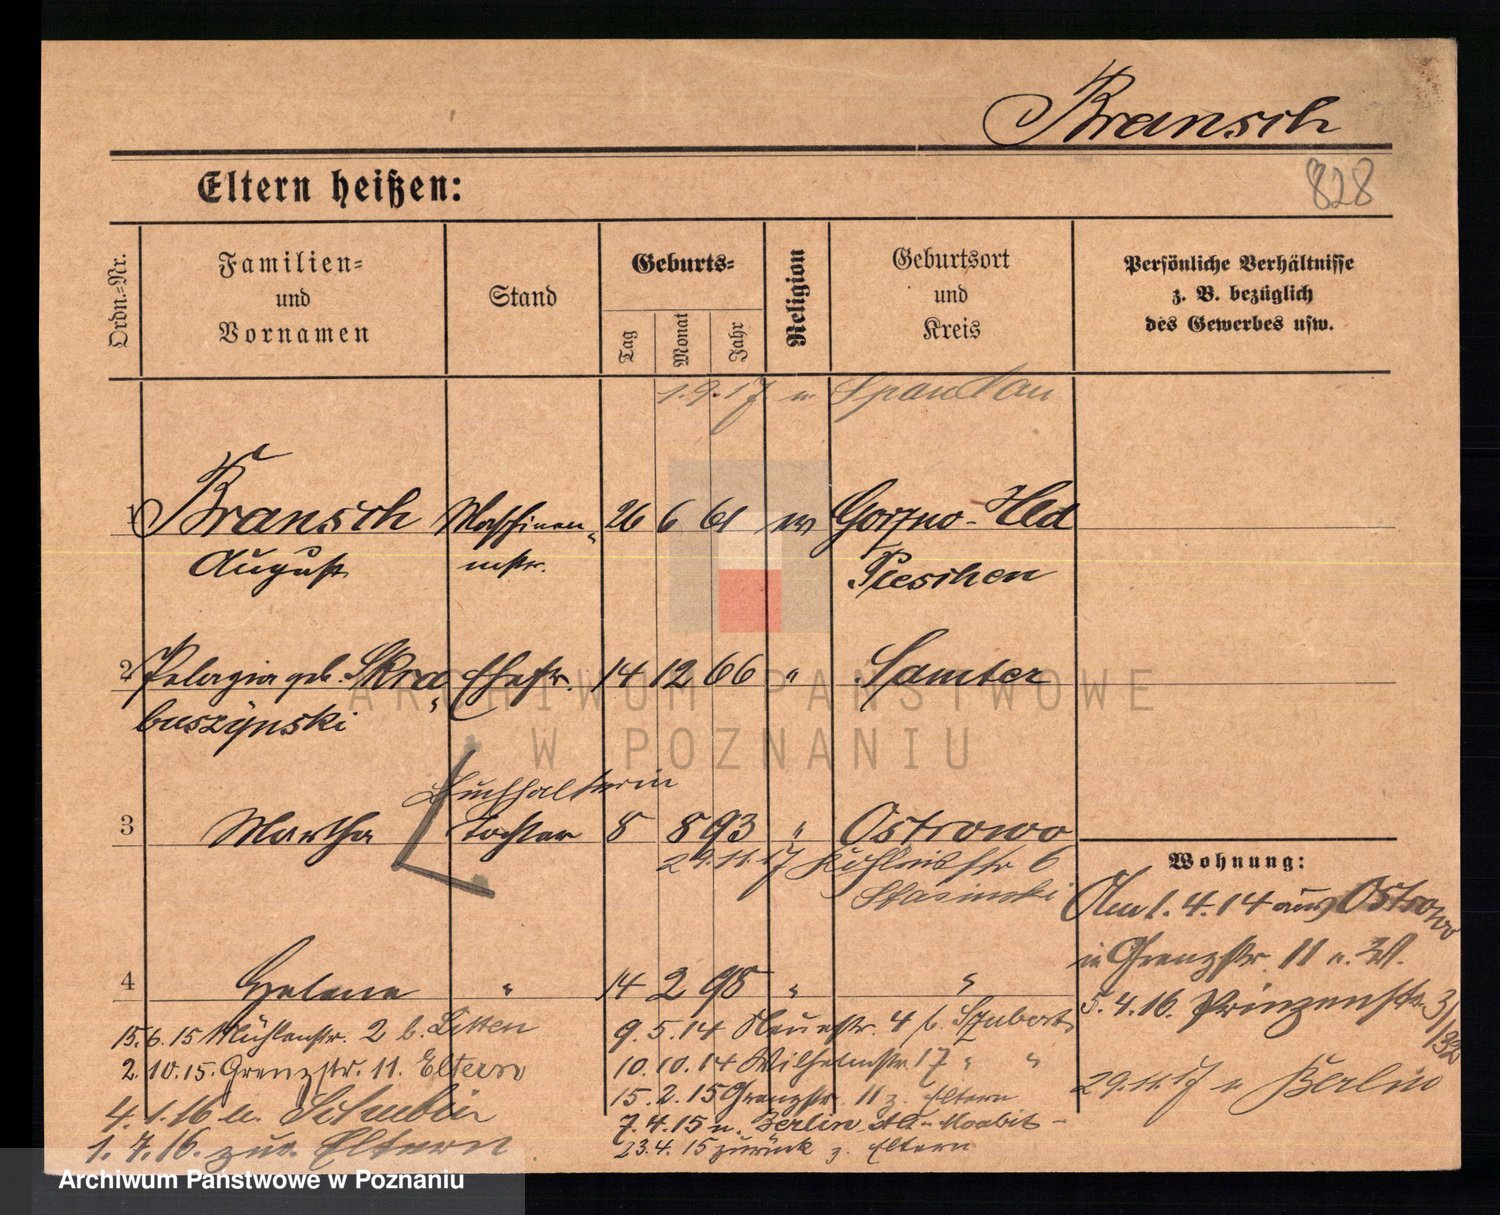 Bransch
828
Eltern heißen:
Ordn.-Nr.
Familien-
und
Vornamen
Stand
Geburts-
Tag
Monat
Jahr
Religion
Geburtsort
und
Kreis
Persönliche Verhältnisse
z. B. bezüglich
des Gewerbes usw.
1.9.17 n. Spandau
1 Bransch Maschinen- 26 6 61 ev Gorzno-Hld
August mstr. Pleschen
2 Pelagia geb. Skra- Ehefr. 14 12 66 " Samter
buszynski
Buchhalterin
3 Martha Tochter 8 8 93 " Ostrowo
29.11.17 6
Stasinski
Wohnung:
Am 1.4.14 aus Ostrowo
in Grenzstr. 11 n. W.
4 Helene " 14 2 98 " "
5.4.16. Prinzenstr. 3
15.6.15 Mühlenstr. 2 b. Litten
2.10.15. Grenzstr. 11. Eltern
4.1.16 n. Schubin
1.7.16. zur. Eltern
9.5.14 Neuestr. 4 b.
10.10.14 Wilhelmstr. 17 " "
15.2.15 Grenzstr. 11 z. Eltern
7.4.15 n. Berlin Alt-Moabit -
23.4.15 zurück z. Eltern
29.11.17 n Berlin
ARCHIWUM PAŃSTWOWE
W POZNANIU
Archiwum Państwowe w Poznaniu